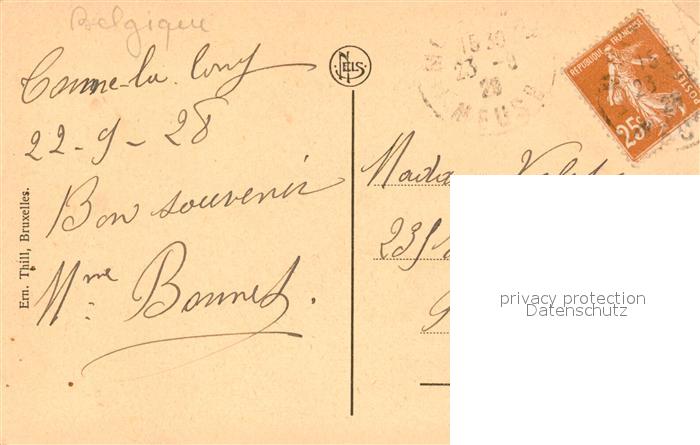 Belgique
22-9-28
Bon souvenir
Mme Bonnet.
Ern. Thill, Bruxelles.
NELS
15 30
23 - 9
28
MEUSE
REPUBLIQUE FRANÇAISE
25c
POSTES
Madame
235
privacy protection
Datenschutz